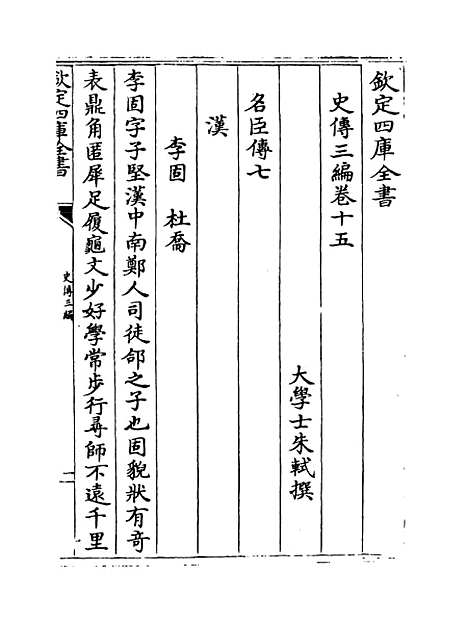 欽定四庫全書
史傳三編卷十五
大學士朱軾撰
名臣傳七
漢
李固　杜喬
李固字子堅漢中南鄭人司徒郃之子也固貌狀有奇
表鼎角匿犀足履龜文少好學常步行尋師不遠千里
欽定四庫全書
史傳三編
一